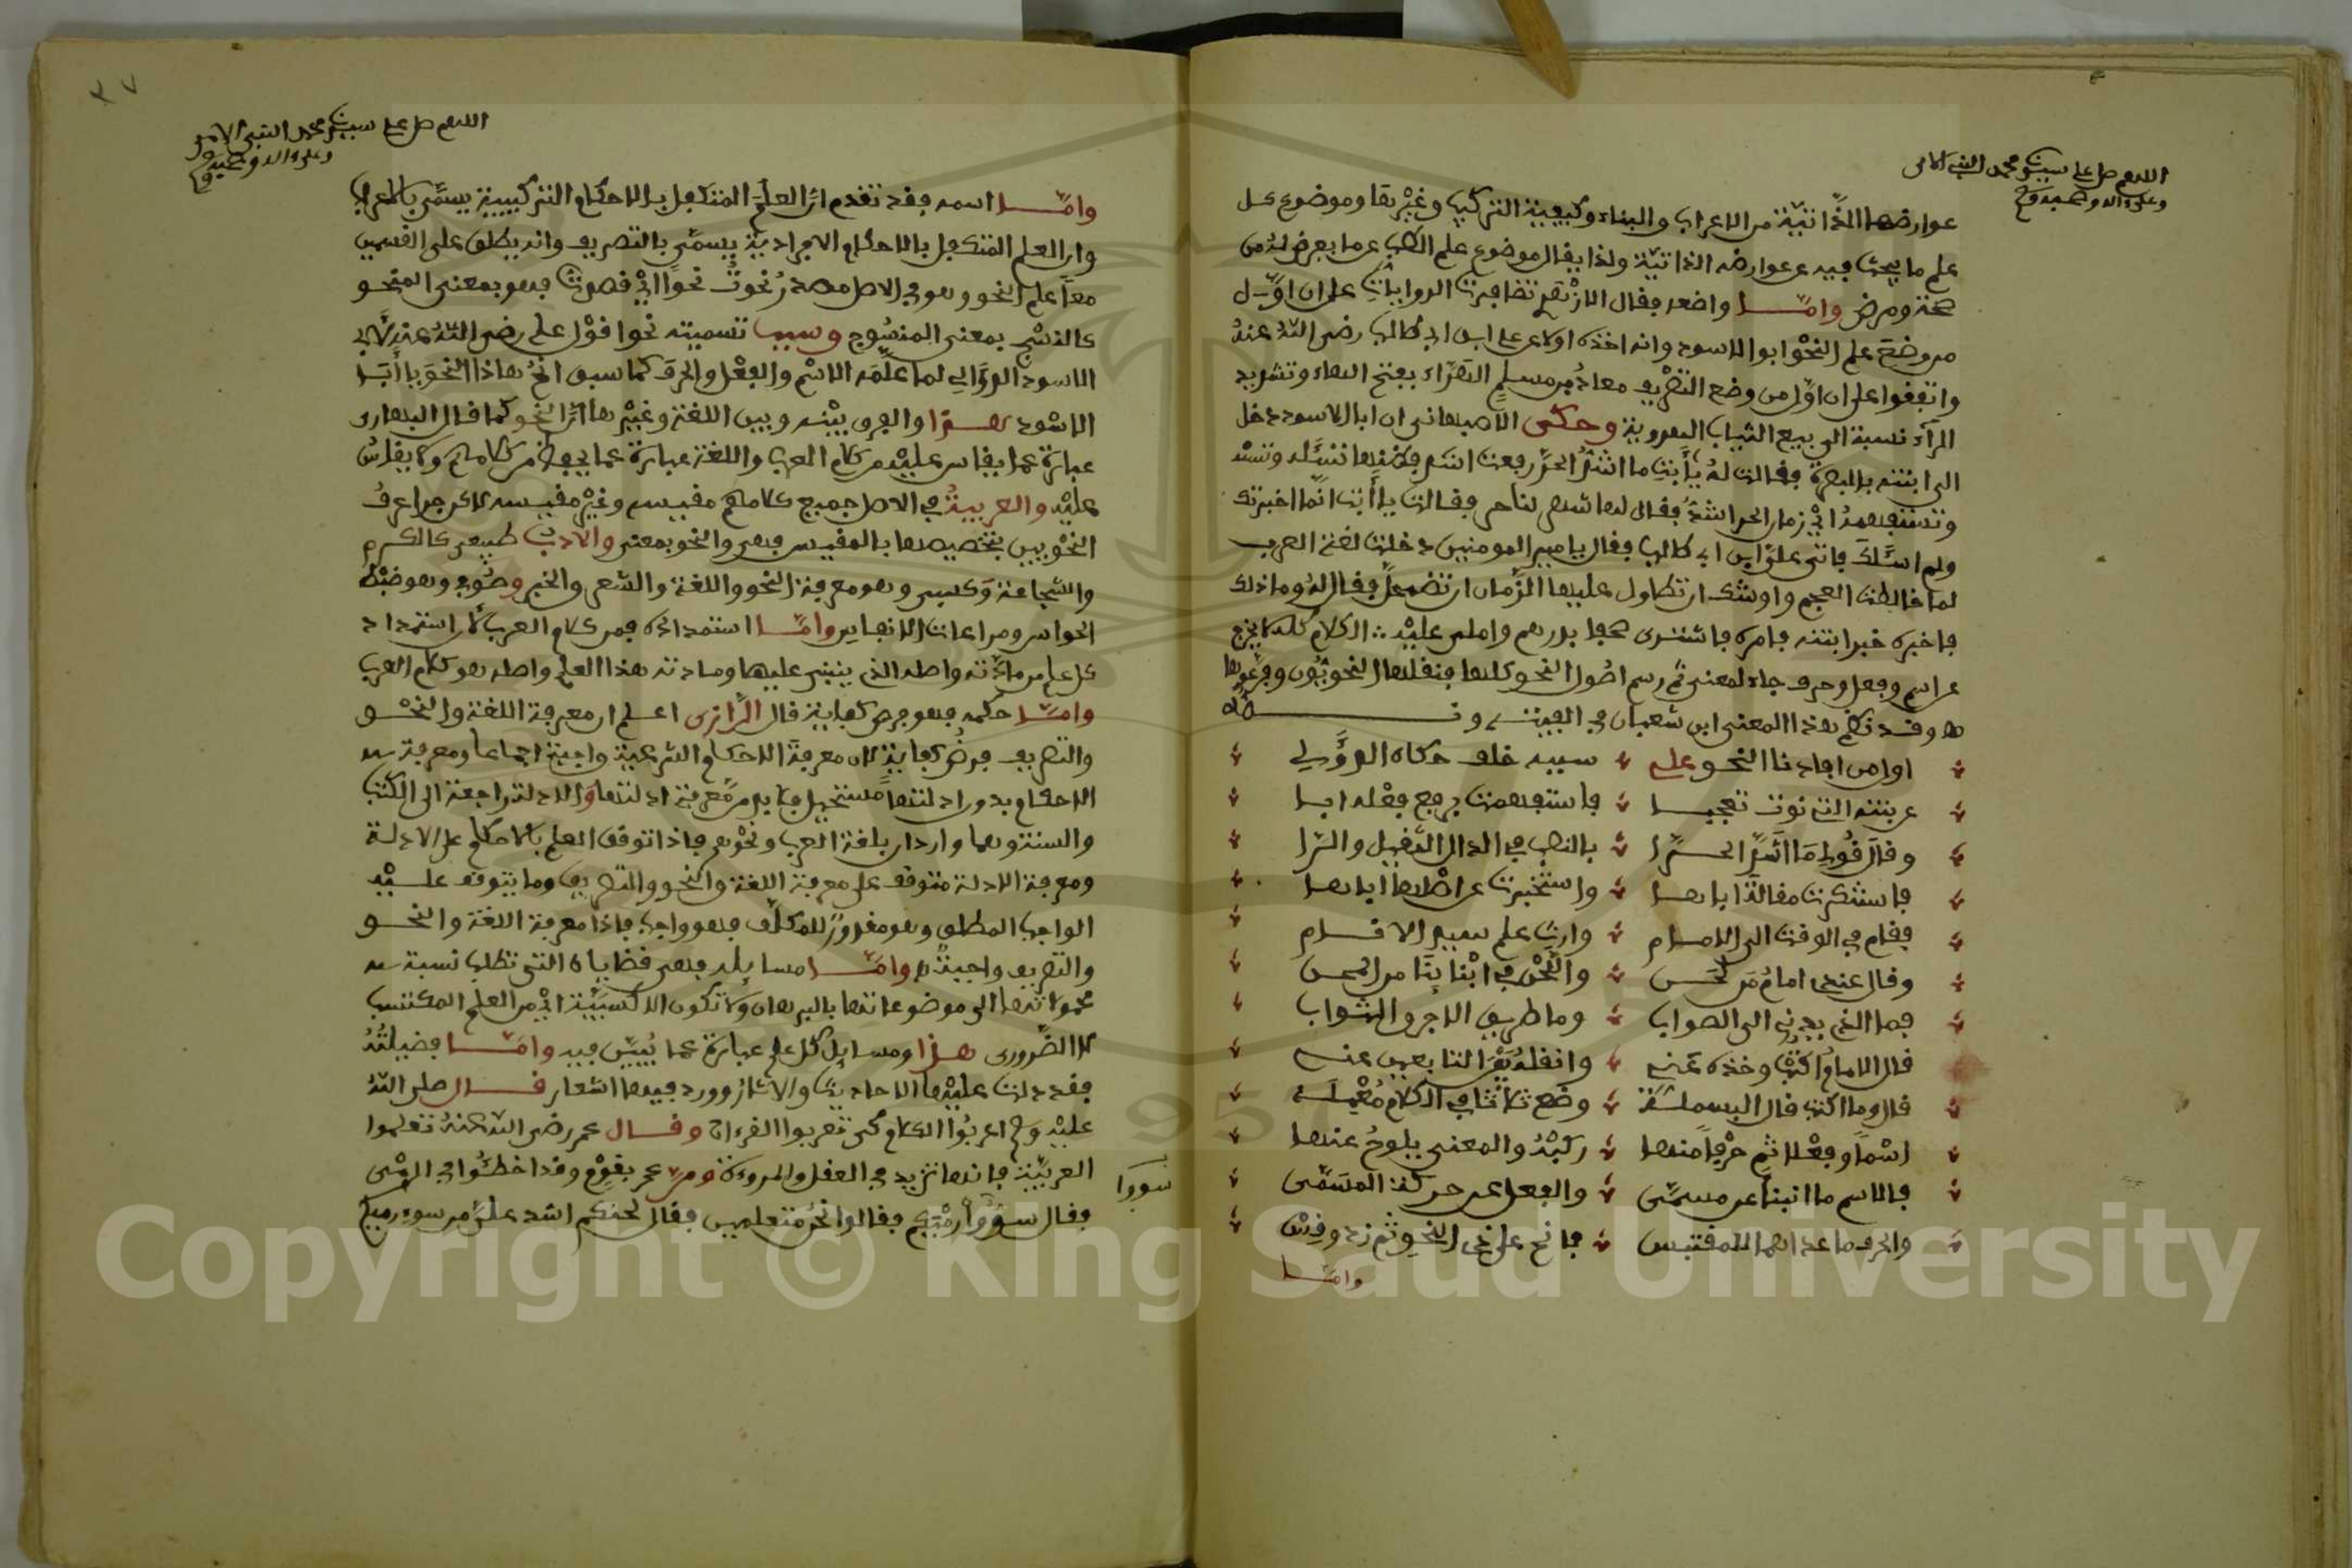 اللهم صل على سيدنا محمد النبي الامي
وعلى ءاله وصحبه وسلم
عوارضها الذاتية من الاعراب والبناء وكيفية التركيب وغيرها وموضوع كل
علم ما يبحث فيه عن عوارضه الذاتية ولذا يقال موضوع علم الطب عما يعرض له من
صحة ومرض وامّا واضعه فقال الازهري تضافرت الروايات على ان اوّل
من وضع علم النحو ابو الاسود وانه اخذه اولا عن علي ابن ابي طالب رضي الله عنه
واتفقوا على ان اوّل من وضع التصريف معاذ بن مسلم الهرّاء بفتح الهاء وتشديد
الرآء نسبة الى بيع الثياب الهروية وحكى الاصبهاني ان ابا الاسود دخل
الى ابنته بالبصرة فقالت له يا أبت ما اشدُّ الحرِّ رفعت اشد فظنها تسئله وتستـ
وتستفهمه ايّ زمان الحر اشدّ فقال لها شهر ناجر فقالت يا أبت انّما اخبرتك
ولم اسئلك فاتى عليّ ابن ابي طالب فقال يا امير المومنين دخلت لغة العرب
لما خالطت العجم واوشك ان تطاول عليها الزمان ان تضمحل فقال له وما ذلك
فاخبره خبر ابنته فامره فاشترى صحفا بدرهم واملى عليه الكلام كله لا يخرج
عن اسم وفعل وحرف جاء لمعنى ثم رسم اصول النحو كلها فنقلها النحويون وفرّعوها
وقد نظم هذا المعنى ابن شعبان في الفيته
اول من افادنا النحو علي سببه خلف حكاه الدؤلي
عن بنته التي نوت تعجبا فاستفهمت برفع فعله ابا
وقال قولي ما اشدّ الحرّا بالنصب في الدال الثقيل والرا
فاستنكرت مقالة اباها واستخبرت عن اصلها اباها
فقام في الوقت الى الامام وارث علم سيد الانام
وقال عندي امام من لحن واللحن في ابنائنا من المحن
فما الذي يهدي الى الصواب وما طريق الاجر والثواب
قال الامام اكتب وخذه عني وانقله بين التابعين عني
قال وما اكتب قال البسملة وضع ثلاثا في الكلام مُعْمَلَة
اسما وفعلا ثم حرفا منها ركّبه والمعنى يلوح عنها
فالاسم ما انبا عن مسمّى والفعل عن حركة المسمّى
والحرف ما عداهما للمقتبس فانح على ذي النحو ثم زد وقس
وامّا
٣٧
اللهم صل على سيدنا محمد النبي الامي
وعلى ءاله وصحبه وسلم
وامّا اسمه فقد تقدم انّ العلم المتكفل بالاحكام التركيبية يسمّى بالاعراب
وان العلم المتكفل بالاحكام الافرادية يسمّى بالتصريف وانه يطلق على القسمين
معاً علم النحو وهو في الاصل مصدر نحوت نحواً ايْ قصدت فهو بمعنى المنحو
كالنسج بمعنى المنسوج وسبب تسميته نحوا قول علي رضي الله عنه لابي
الاسود الدؤلي لما علّمه الاسم والفعل والحرف كما سبق انحُ هاذا النحو يا أبا
الاسود هذا والفرق بينه وبين اللغة وغيرها انّ النحو كما قال البهاري
عبارة عما يقاس عليه من كلام العرب واللغة عبارة عما يحفظ من كلامهم ولا يقاس
عليه والعربية في الاصل جميع كلامهم مقيسه وغير مقيسه لاكن جرا عرف
النحويين بتخصيصها بالمقيس فهي والنحو بمعنى والادب طبيعي كالكرم
والشجاعة وكسبي وهو معرفة النحو واللغة والشعر والخبر وصوفي وهو ضبط
الحواس ومراعات الانفاس وامّا استمداده فمن كلام العرب لأن استمداد
كل علم من مادّته واصله الذي ينبني عليها ومادته هذا العلم واصله هو كلام العرب
وامّا حكمه فهو فرض كفاية قال الرّازي اعلم ان معرفة اللغة والنحو
والتصريف فرض كفاية لان معرفة الاحكام الشرعية واجبة اجماعا ومعرفة
الاحكام بدون ادلتها مستحيل فلا بد من معرفة ادلتها والادلة راجعة الى الكتاب
والسنة وهما واردان بلغة العرب ونحوهم فاذا توقف العلم بالاحكام على الادلة
ومعرفة الادلة متوقف على معرفة اللغة والنحو والتصريف وما يتوقف عليه
الواجب المطلق وهو مقدور للمكلّف فهو واجب فاذا معرفة اللغة والنحو
والتصريف واجبة وامّا مسايله فهي قضاياه التي تطلب نسبة
محمولاتها الى موضوعاتها بالبرهان ولا تكون الا كسبيّة ايْ من العلم المكتسب
لا الضّروري هذا ومسايل كل علم عبارة عما يُبيّن فيه وامّا فضيلتُهُ
فقد دلت عليها الاحاديث والاثار وورد فيها اشعار قال صلى الله
عليه وسلم اعربوا الكلام كي تعربوا القرءان وقال عمر رضي الله عنه تعلموا
العربيّة فانها تزيد في العقل والمروءة ومرّ عمر بقوم وقد اخطئوا في الرمي
فقال سوءا رميتم فقالوا نحن متعلمين فقال لحنكم اشد عليّ من سوء رميكم
Copyright © King Saud University
1957